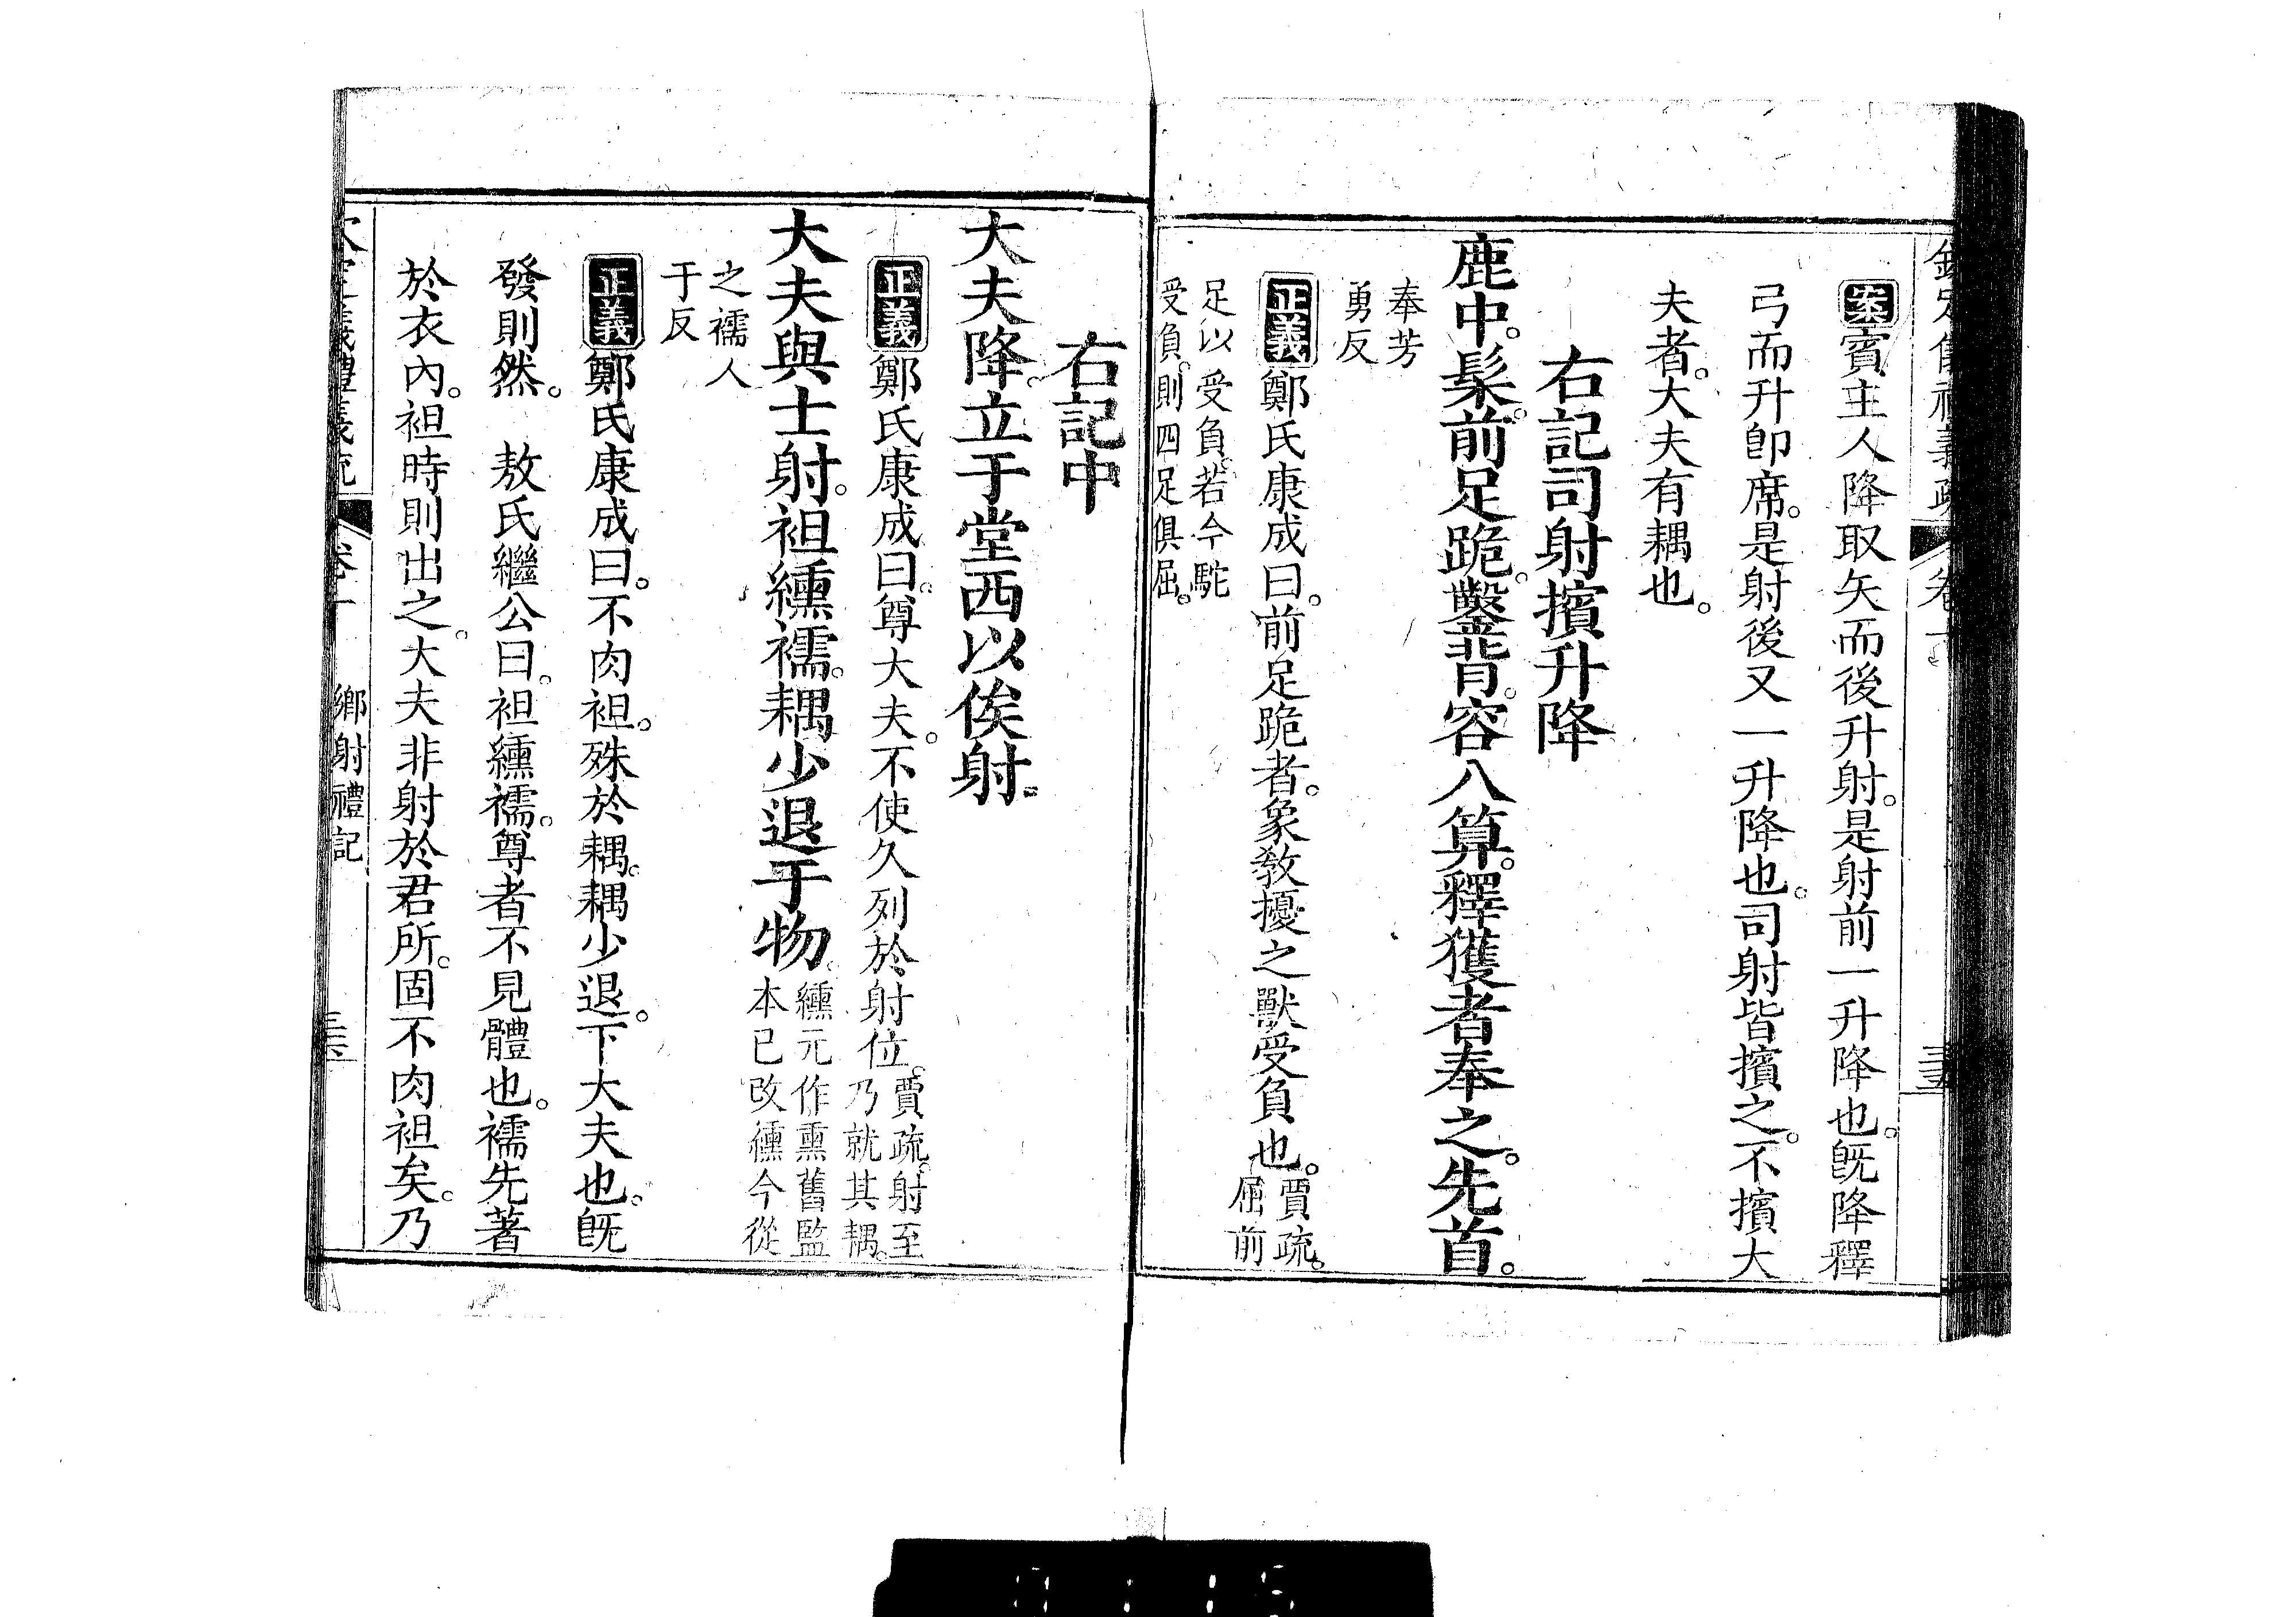 案賓主人降取矢而後升射。是射前一升降也。旣降釋
弓而升卽席。是射後又一升降也。司射皆擯之。不擯大
夫者。大夫有耦也。
右記司射擯升降
鹿中。髹。前足跪。鑿背。容八算。釋獲者奉之。先首。
奉芳
勇反
正義鄭氏康成曰。前足跪者。象教擾之獸受負也。
賈疏。
屈前
足以受負。若今駝
受負。則四足俱屈。
右記中
大夫降。立于堂西以俟射。
正義鄭氏康成曰。尊大夫。不使久列於射位。
賈疏。射至
乃就其耦。
大夫與士射。袒纁襦。耦少退于物。
纁元作熏舊監
本已改纁今從
之襦人
于反
正義鄭氏康成曰。不肉袒。殊於耦。耦少退。下大夫也。旣
發則然。 敖氏繼公曰。袒纁襦。尊者不見體也。襦先著
於衣內。袒時則出之。大夫非射於君所。固不肉袒矣。乃
鄉射禮記